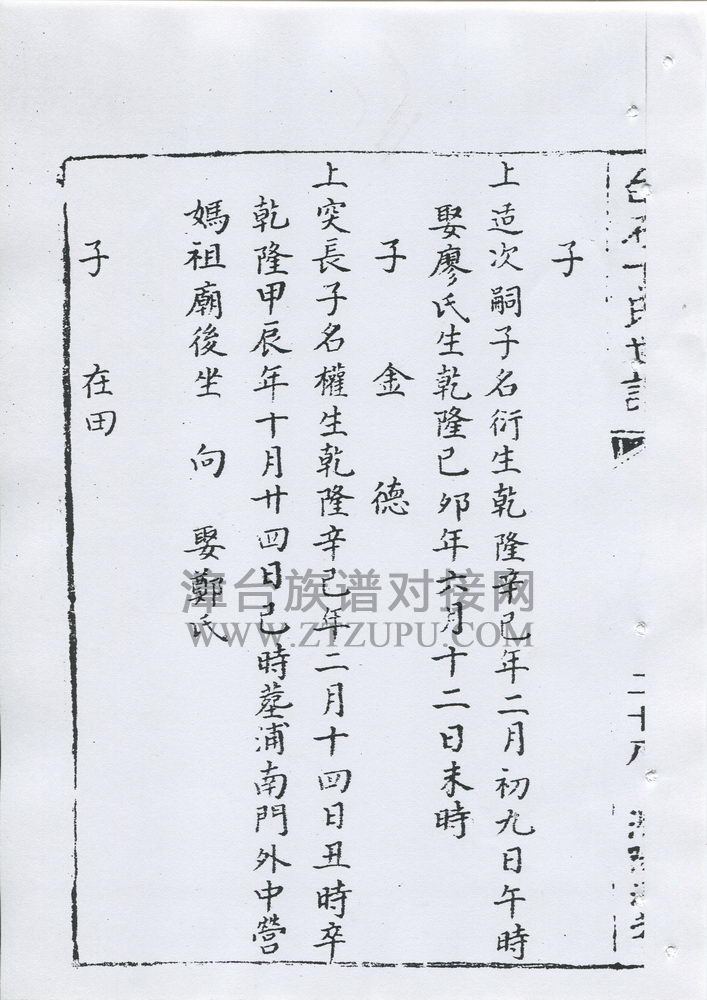 二十八
子
上造次嗣子名衍生乾隆辛巳年二月初九日午時
娶廖氏生乾隆己卯年六月十二日未時
子 金德
上突長子名權生乾隆辛巳年二月十四日丑時卒
乾隆甲辰年十月廿四日巳時墓浦南門外中營
媽祖廟後坐 向 娶鄭氏
子 在田
漳台族谱对接网
WWW.ZTZUPU.COM